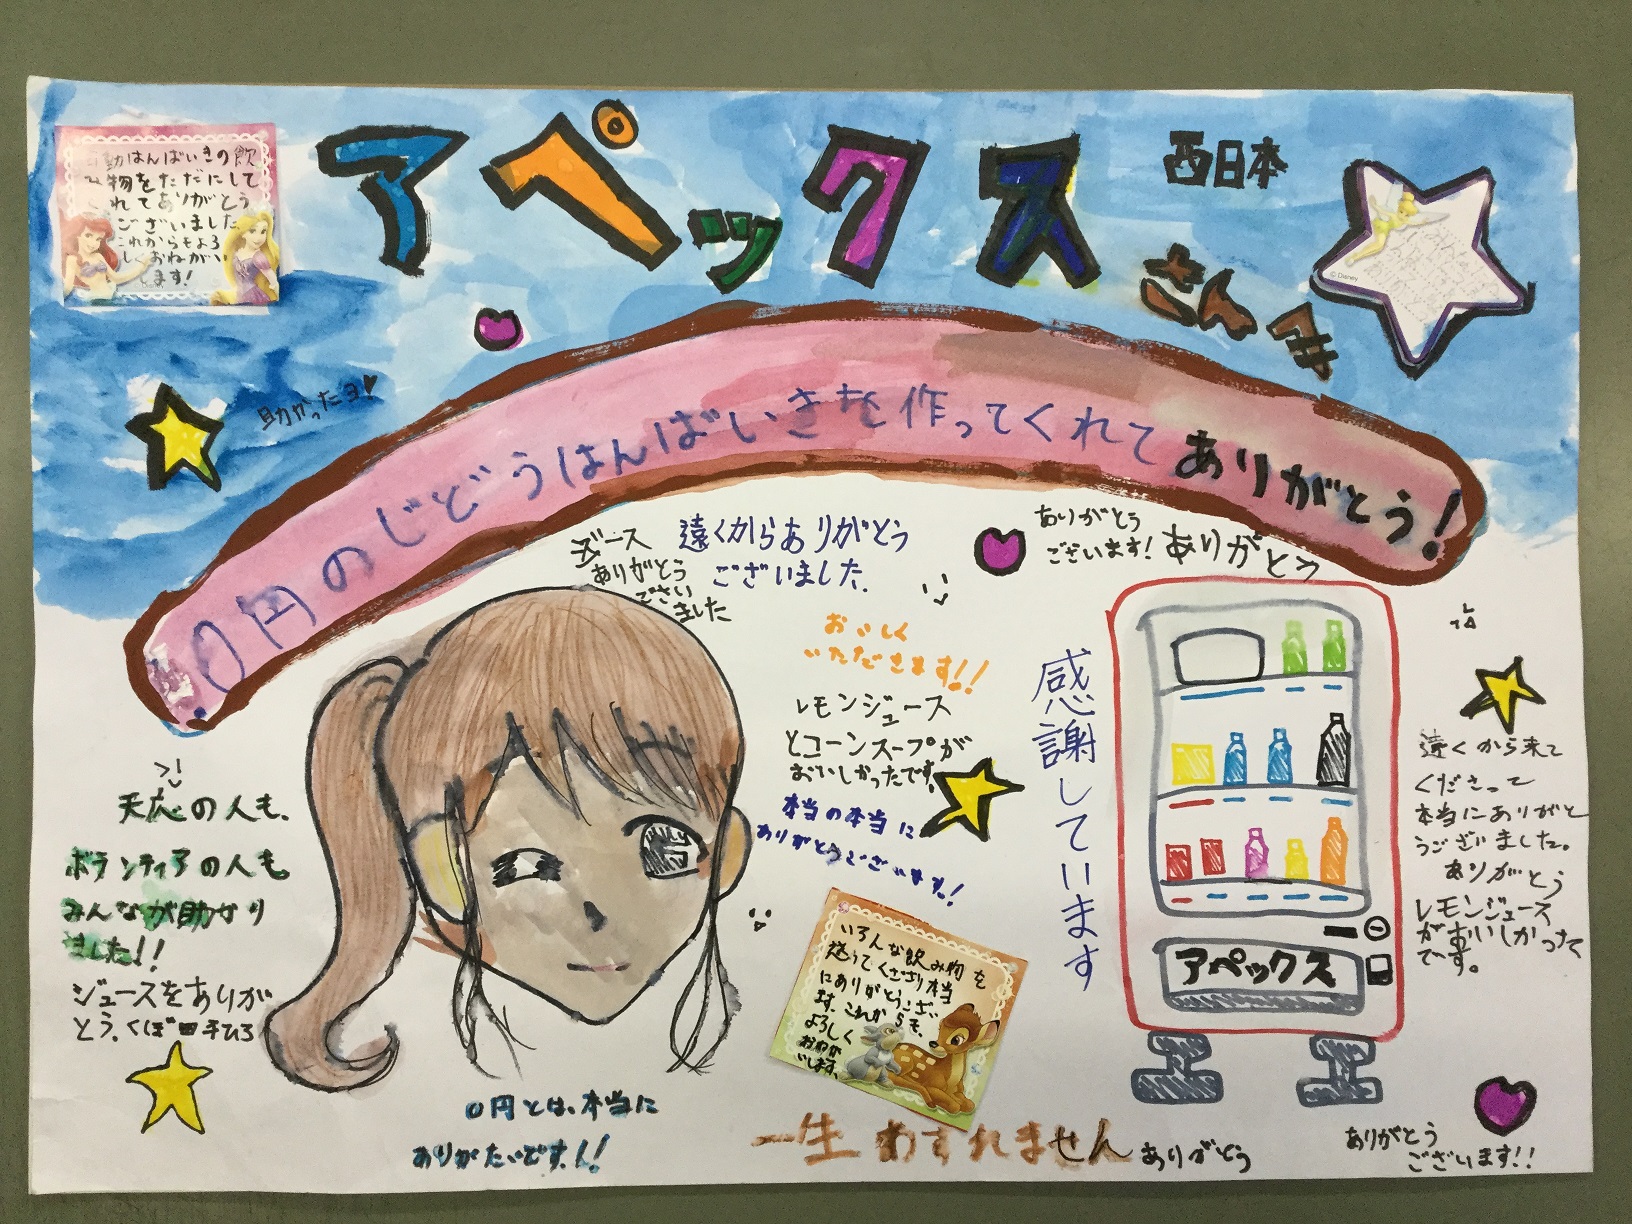 アペックス
西日本
さんへ
動はんばいきの飲
み物をただにして
くれてありがとう
ございました
これからもよろ
しくおねがい
します!
© Disney
助かったヨ!
0円のじどうはんばいきを作ってくれてありがとう!
ジュース
ありがとう
ござい
ました
遠くからありがとう
ございました.
ありがとう
ございます! ありがとう
おいしく
いただきます!!
レモンジュース
とコーンスープが
おいしかったです。
本当の本当に
ありがとうございます!
感謝しています
天応の人も、
ボランティアの人も
みんなが助かり
ました!!
ジュースをありが
とう。くぼ田千ひろ
いろんな飲み物を
送ってくださり本当
にありがとうござい
ます。これからも、
よろしく
おねが
いします。
アペックス
遠くから来て
くださって
本当にありがと
うございました。
ありがとう
レモンジュース
がおいしかった
です。
0円とは、本当に
ありがたいです!!
一生わすれません
ありがとう
ありがとう
ございます!!